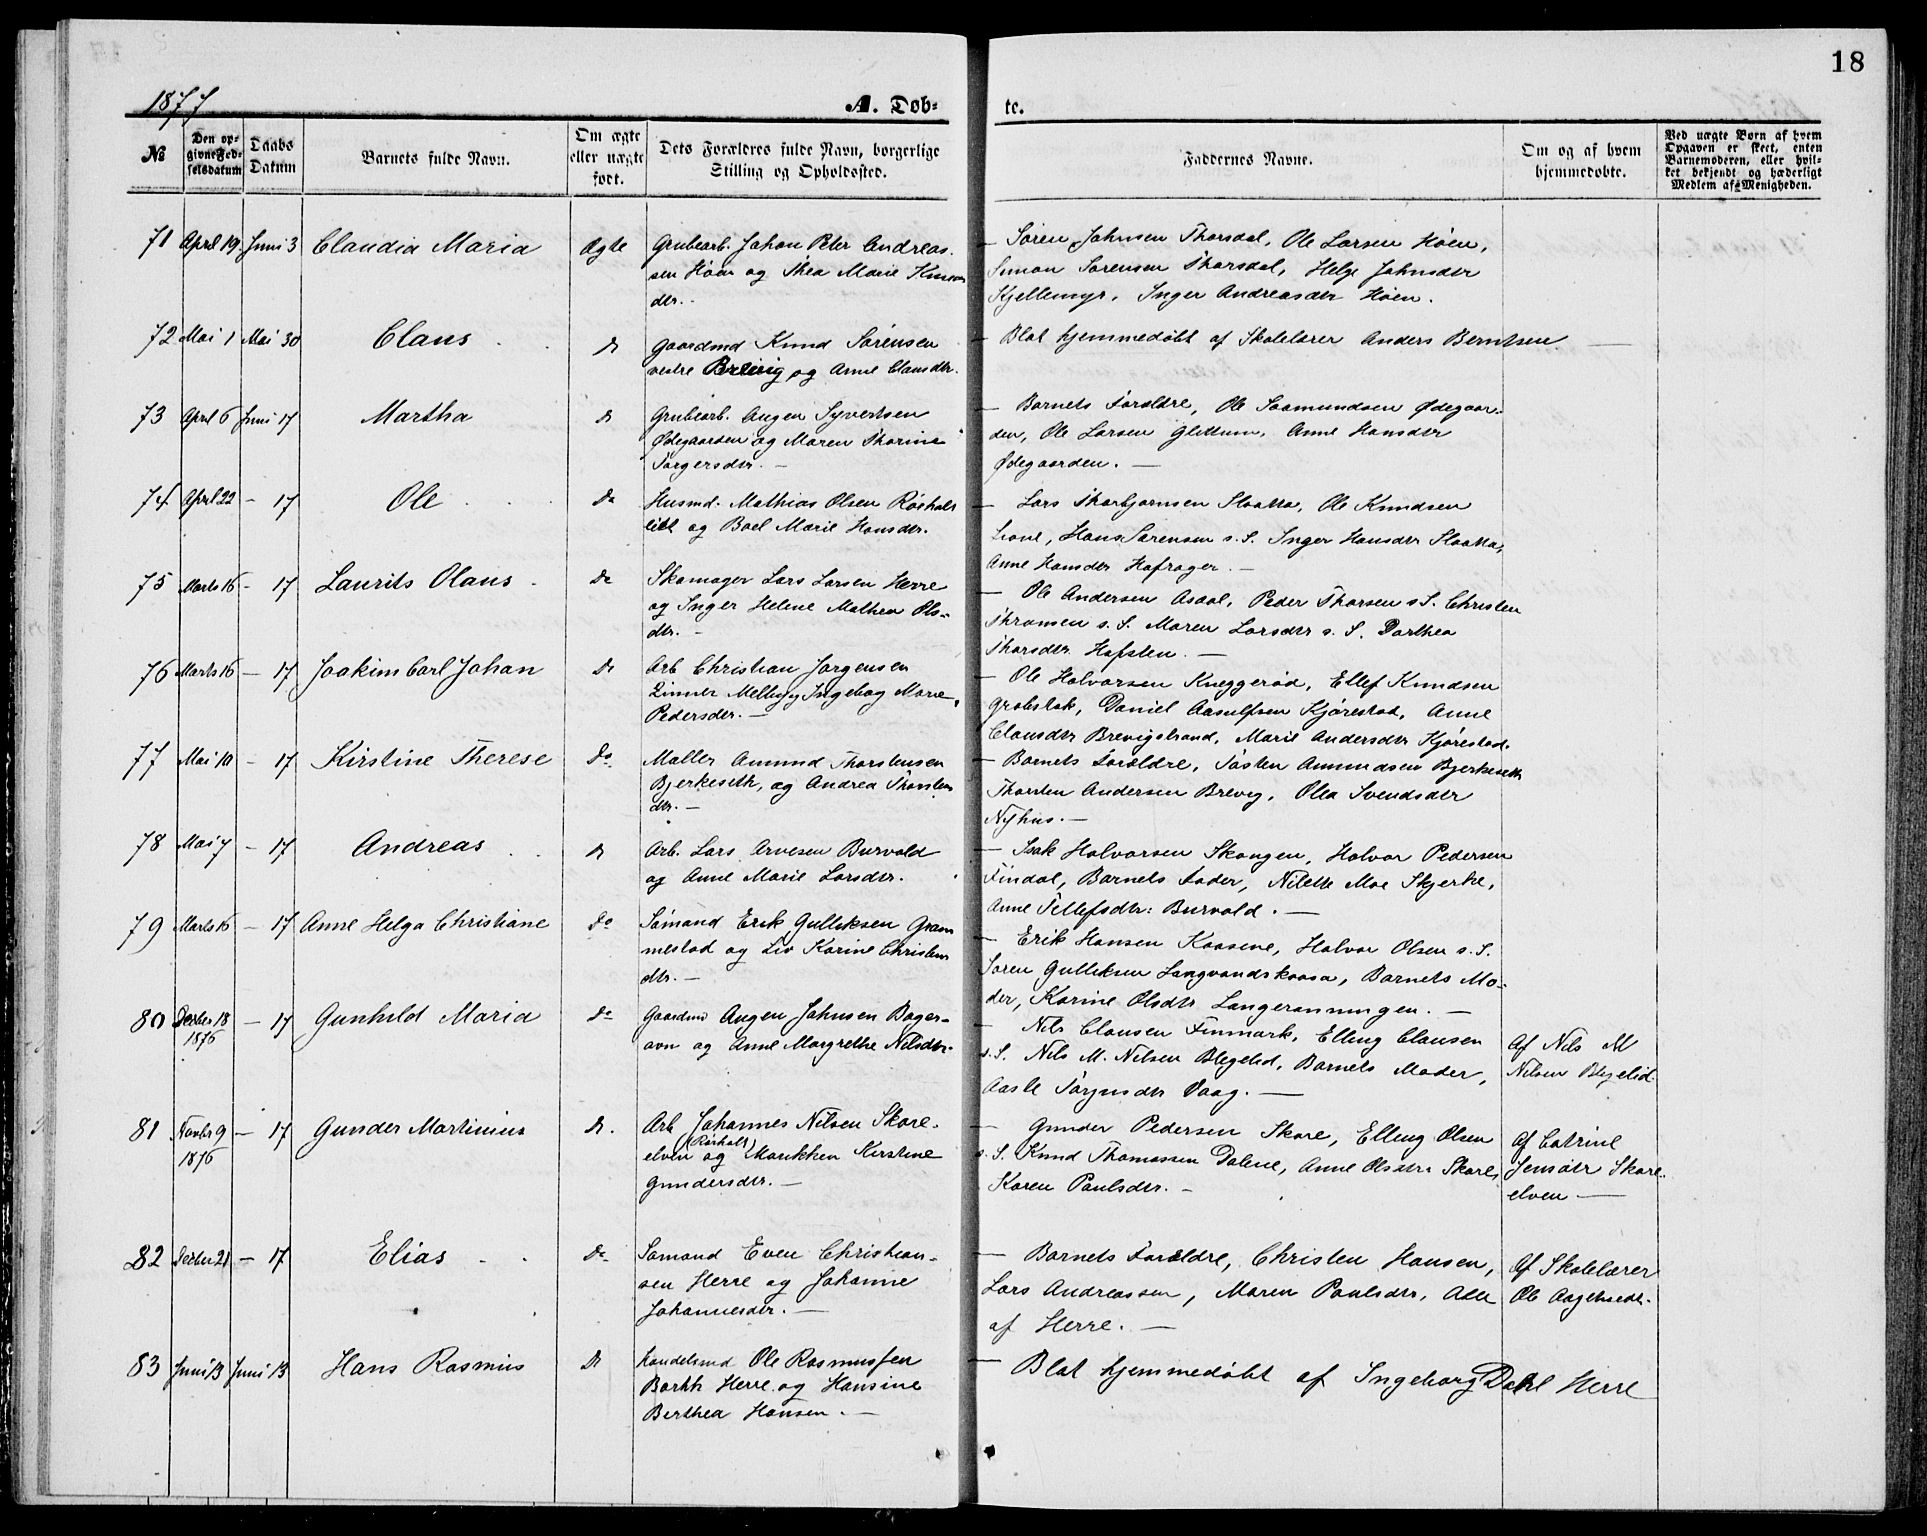 18
1877
A. Døb-
te.
№
Den op-
givne Fød-
selsdatum
Daabs
Datum
Barnets fulde Navn.
Om ægte
eller uægte
født.
Dets Forældres fulde Navn, borgerlige
Stilling og Opholdssted.
Faddernes Navne.
Om og af hvem
hjemmedøbte.
Ved uægte Børn af hvem
Opgaven er skeet, enten
Barnemoderen, eller hvil-
ket bekjendt og hæderligt
Medlem af Menigheden.
71 April 19. Juni 3 Claudia Maria Ægte
Grubearb. Johan Peter Andreas-
sen Höen og Thea Marie
dtr.
– Sören Johnsen Thorsdal, Ole Larsen Höen,
Simon Sörensen Thorsdal, Helge Johnsdtr
Kjellemyr, Inger Andreasdtr Höen.
72 Mai 1 Mai 30 Claus
Do
Gaardmd Knud Sörensen
vestre Brevig og Anne Clausdtr.
– Blot hjemmedöbt af Skolelærer Anders Berntsen –
73 April 6 Juni 17 Martha
Do
Grubearb. Augen Syvertsen
Ödegaarden og Maren Thorine
Torgersdtr. –
– Barnets Forældre, Ole Saamundsen Ödegaar-
den, Ole Larsen Glittum, Anne Hansdtr
Ödegaarden. –
74 April 22 – 17 Ole
Do
Husmd. Mathias Olsen Rösholt
eiet og Boel Marie Hansdtr.
– Lars Thorbjörnsen Slaatta, Ole Knudsen
Hans Sörensen s. S. Inger Hansdtr Slaatta,
Anne Hansdtr Hafrager. –
75 Marts 16 – 17 Laurits Olaus
Do
Skomager Lars Larsen Herre
og Inger Helene Mathea Ols-
dtr. –
– Ole Andersen Asdal, Peder Thorsen s. S. Christen
s. S. Maren Larsdtr s. S. Dorthea
Thorsdtr Hafsten. –
76 Marts 16 – 17 Joakim Carl Johan
Do
Arb Christian Jörgensen
Ingebog Marie
Pedersdtr. –
– Ole Halvorsen Kneggeröd, Ellef Knudsen
Grobstok, Daniel Aasulfsen Kjörestad, Anne
Clausdtr Brevigstrand, Marie Andersdtr Kjörestad.
77 Mai 10 – 17 Kirstine Therese
Do
Möller Amund Thorstensen
Bjerkeseth, og Andrea Thorstens
dtr. –
– Barnets Forældre, Tosten Amundsen Bjerkeseth
Thorsten Andersen Brevig, Olea Svendsdtr
Nyhus. –
78 Mai 7 – 17 Andreas
Do
Arb. Lars Arvesen Burvold
og Anne Marie Larsdtr.
– Isak Halvorsen Skougen, Halvor Pedersen
Findal, Barnets Fader, Nilette Moe Skjerke,
Anne Tellefsdtr: Burvold. –
79 Marts 16 – 17 Anne Helga Christiane
Do
Sömand Erik Gulliksen Gram
mestad og Liv Karine Christens
dtr. –
– Erik Hansen Kaasene, Halvor Olsen s. S.
Sören Gulliksen Langvandskaasa, Barnets Mo-
der, Karine Olsdtr Langerönningen. –
80 Decber 18
1876 – 17 Gunhild Maria
Do
Gaardmd Augen Johnsen Bager-
ovn og Anne Margrethe Nilsdtr.
– Nils Clausen Finmark, Elling Clausen
s. S. Nils M. Nilsen Blegelid, Barnets Moder,
Aasle Törjusdtr Vaag. –
Af Nils M
Nilsen Blegelid.
81 Novbr 9
1876 – 17 Gunder Martinius
Do.
Arb Johannes Nilsen Skore-
(Rösholt)
elven og Marikken Kirstine
Gundersdtr. –
– Gunder Pedersen Skore, Elling Olsen
s. S. Knud Thomassen Dalene, Anne Olsdtr Skore,
Karen Paulsdtr. –
Af Catrine
Jensdtr Skore-
elven –
82 Decber 21 – 17 Elias
Do
Sömand Even Christian-
sen Herre og Johanne
Johannesdtr. –
– Barnets Forældre, Christen Hansen,
Lars Andreassen, Maren Paulsdtr, Alle
af Herre. –
Af Skolelærer
Ole
83 Juni 13 Juni 13 Hans Rasmus
Do
Handelsmd Ole Rasmussen
Herre og Hansine
Berthea Hansen. –
– Blot hjemmedöbt af Ingeborg Dahl Herre